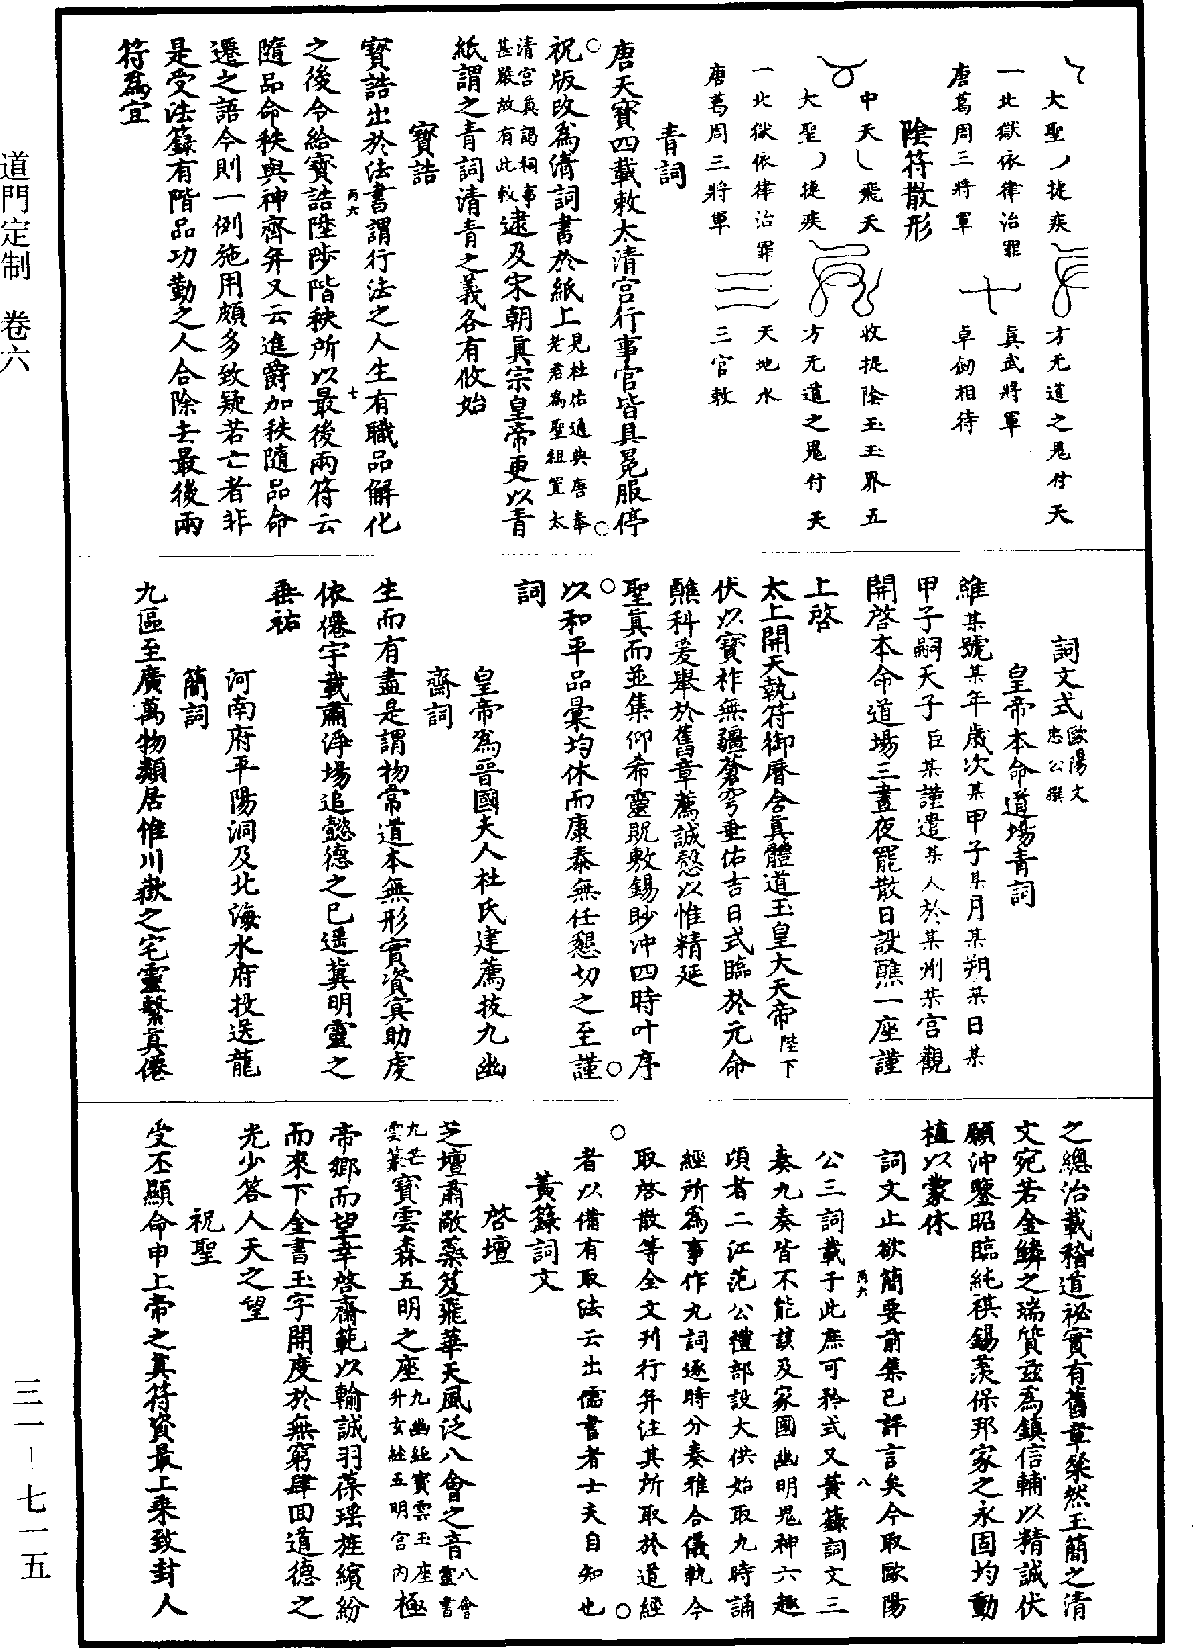 道門定制 卷六
大聖丿捷疾 才无道之鬼付天
一北獄依律治罪 真武將軍
唐葛周三將軍 十 卓劒相待
陰符散形
中天 飛天 收捉陰玉玉界五
大聖丿捷疾 才无道之鬼付天
一北獄依律治罪 天地水
唐葛周三將軍 三官敕
青詞
唐天寶四載敕太清宮行事官皆具冕服停
祝版改為清詞書於紙上見杜佑通典唐奉老君為聖組置太
清宮真謁祠事甚嚴故有此敕逮及宋朝真宗皇帝更以青
紙謂之青詞清青之義各有攸始
寶誥
寶誥出於法書謂行法之人生有職品解化
之後令給寶誥陞陟階秩所以最後兩符云
隨品命秩與神齊年又云進爵加秩隨品命
遷之語今則一例施用頗多致疑若亡者非
是受法籙有階品功勤之人合除去最後兩
符為宜
丙六 七
詞文式歐陽文忠公撰
皇帝本命道場青詞
維某號某年歲次某甲子某月某朔某日某
甲子嗣天子臣某謹遣某人於某州某宮觀
開啓本命道場三晝夜罷散日設醮一座謹
上啓
太上開天執符御曆含真體道玉皇大天帝陛下
伏以寶祚無疆蒼穹垂佑吉日式臨於元命
醮科爰舉於舊章薦誠慤以惟精延
聖真而並集仰希靈貺敷錫眇沖四時叶序
以和平品彙均休而康泰無任懇切之至謹
詞
皇帝為晉國夫人杜氏建薦拔九幽
齋詞
生而有盡是謂物常道本無形實資冥助虔
依僊宇載肅淨場追懿德之已遥冀明靈之
垂祐
河南府平陽洞及北海水府投送龍
簡詞
九區至廣萬物類居惟川嶽之宅靈繫真僊
之總治載稽道祕實有舊章粲然玉簡之清
文宛若金鱗之瑞質茲為鎮信輔以精誠伏
願沖鑒昭臨純祺錫羨保邦家之永固均動
植以蒙休
詞文止欲簡要前集已評言矣今取歐陽
公三詞載于此庶可矜式又黃籙詞文三
奏九奏皆不能該及家國幽明鬼神六趣
頃者二江范公禮部設大供始取九時誦
經所為事作九詞逐時分奏雅合儀軌今
取啓散等全文刊行并注其所取於道經
者以備有取法云出儒書者士夫自知也
丙六 八
黃籙詞文
啓壇
芝壇肅敞蘂笈飛華天風泛八會之音八會靈書
九芒雲篆寶雲森五明之座九幽經寶雲玉座升玄經五明宮內極
帝鄉而望幸啓齋範以輸誠羽葆瑶旌繽紛
而來下金書玉字開度於無窮肆回道德之
光少答人天之望
祝聖
受丕顯命申上帝之真符資最上乘致封人
三一-七一五